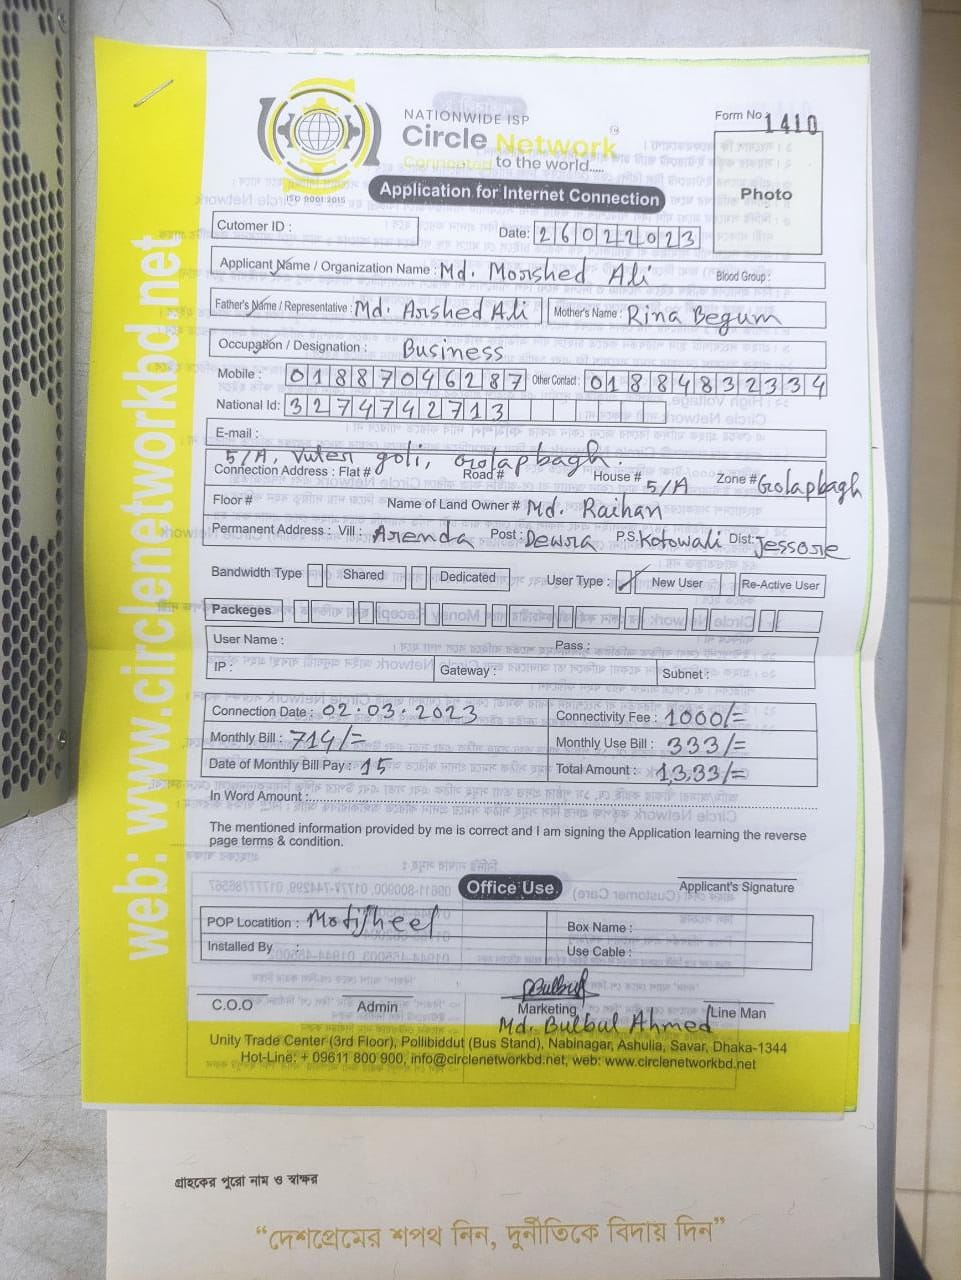 NATIONWIDE ISP
Circle Network
Connected to the world.....
ISO 9001:2015
Form No 1410
Application for Internet Connection
Photo
Cutomer ID :
Date: 26022023
Applicant Name / Organization Name : Md. Morshed Ali Blood Group :
Father's Name / Representative : Md. Arshed Ali Mother's Name : Rina Begum
Occupation / Designation : Business
Mobile : 01887046287 Other Contact : 01884832334
National Id: 3274742713
E-mail :
5/A, Vuter goli, Golapbagh.
Connection Address : Flat # Road # House # 5/A Zone # Golapbagh
Floor # Name of Land Owner # Md. Raihan
Permanent Address : Vill : Arenda Post : Dewra P.S. Kotowali Dist: Jessore
Bandwidth Type Shared Dedicated User Type : New User Re-Active User
Packeges
User Name : Pass :
IP : Gateway : Subnet :
Connection Date : 02.03.2023 Connectivity Fee : 1000/=
Monthly Bill : 714/= Monthly Use Bill : 333/=
Date of Monthly Bill Pay : 15 Total Amount : 1,333/=
In Word Amount :
The mentioned information provided by me is correct and I am signing the Application learning the reverse
page terms & condition.
Applicant's Signature
Office Use.
POP Locatition : Motijheel Box Name :
Installed By : Use Cable :
Bulbul
C.O.O Admin Marketing Line Man
Md. Bulbul Ahmed
Unity Trade Center (3rd Floor), Pollibiddut (Bus Stand), Nabinagar, Ashulia, Savar, Dhaka-1344
Hot-Line: + 09611 800 900, info@circlenetworkbd.net, web: www.circlenetworkbd.net
web: www.circlenetworkbd.net
গ্রাহকের পুরো নাম ও স্বাক্ষর
“দেশপ্রেমের শপথ নিন, দুর্নীতিকে বিদায় দিন”